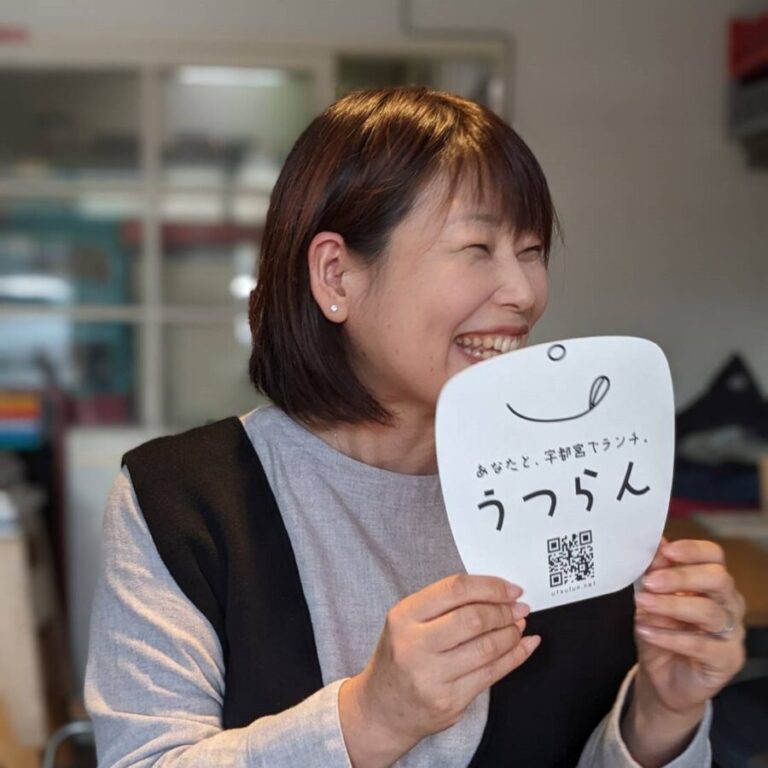 あなたと、宇都宮でランチ。
うつらん
utsulun.net